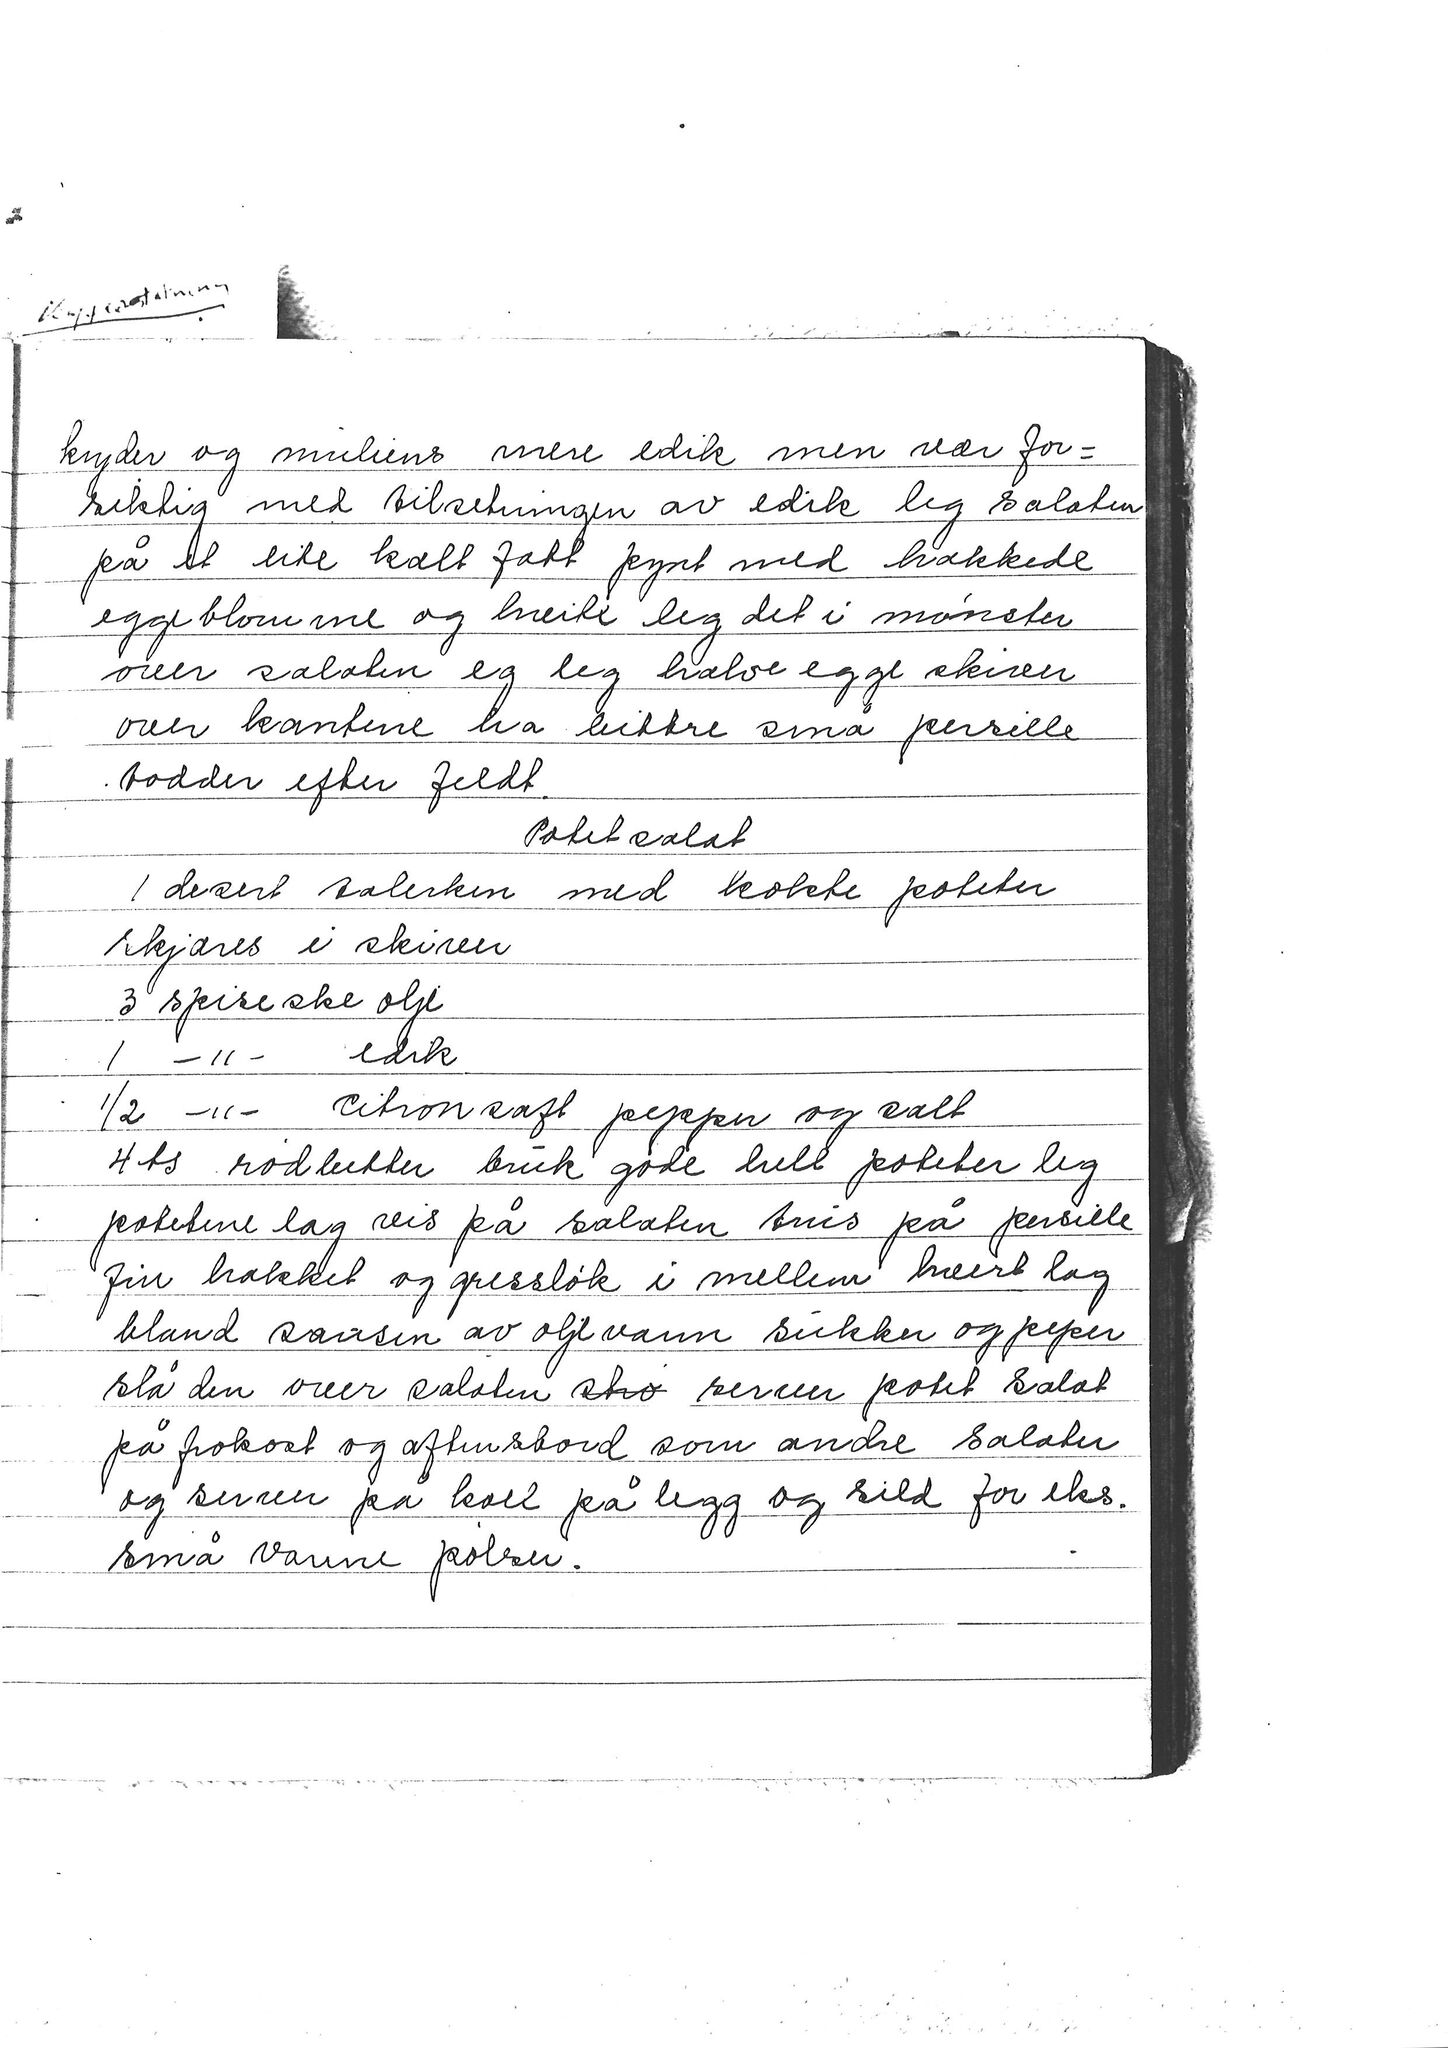 kryder og muliens mere edik men vær for=
siktig med tilsetningen av edik leg salaten
på et lite kalt fatt pynt med hakkede
eggeblomme og hvite leg det i mønster
over salaten og leg halve egge skiver
over kantene ha bittre små persille
todder efter feldt.
Potet salat
1 desert talerken med kokte poteter
skjæres i skiver
3 spise ske olje
1 -"- edik
1/2 -"- citronsaft pepper og salt
4 ts rødbetter bruk gode hele poteter leg
potetene lag vis på salaten tris på persille
fin hakket og gressløk i mellem hvert lag
bland sausen av olje vann sukker og peper
slå den over salaten strø server potet salat
på frokost og aftensbord som andre salater
og server på koll på legg og sild for eks.
små varme pølser.